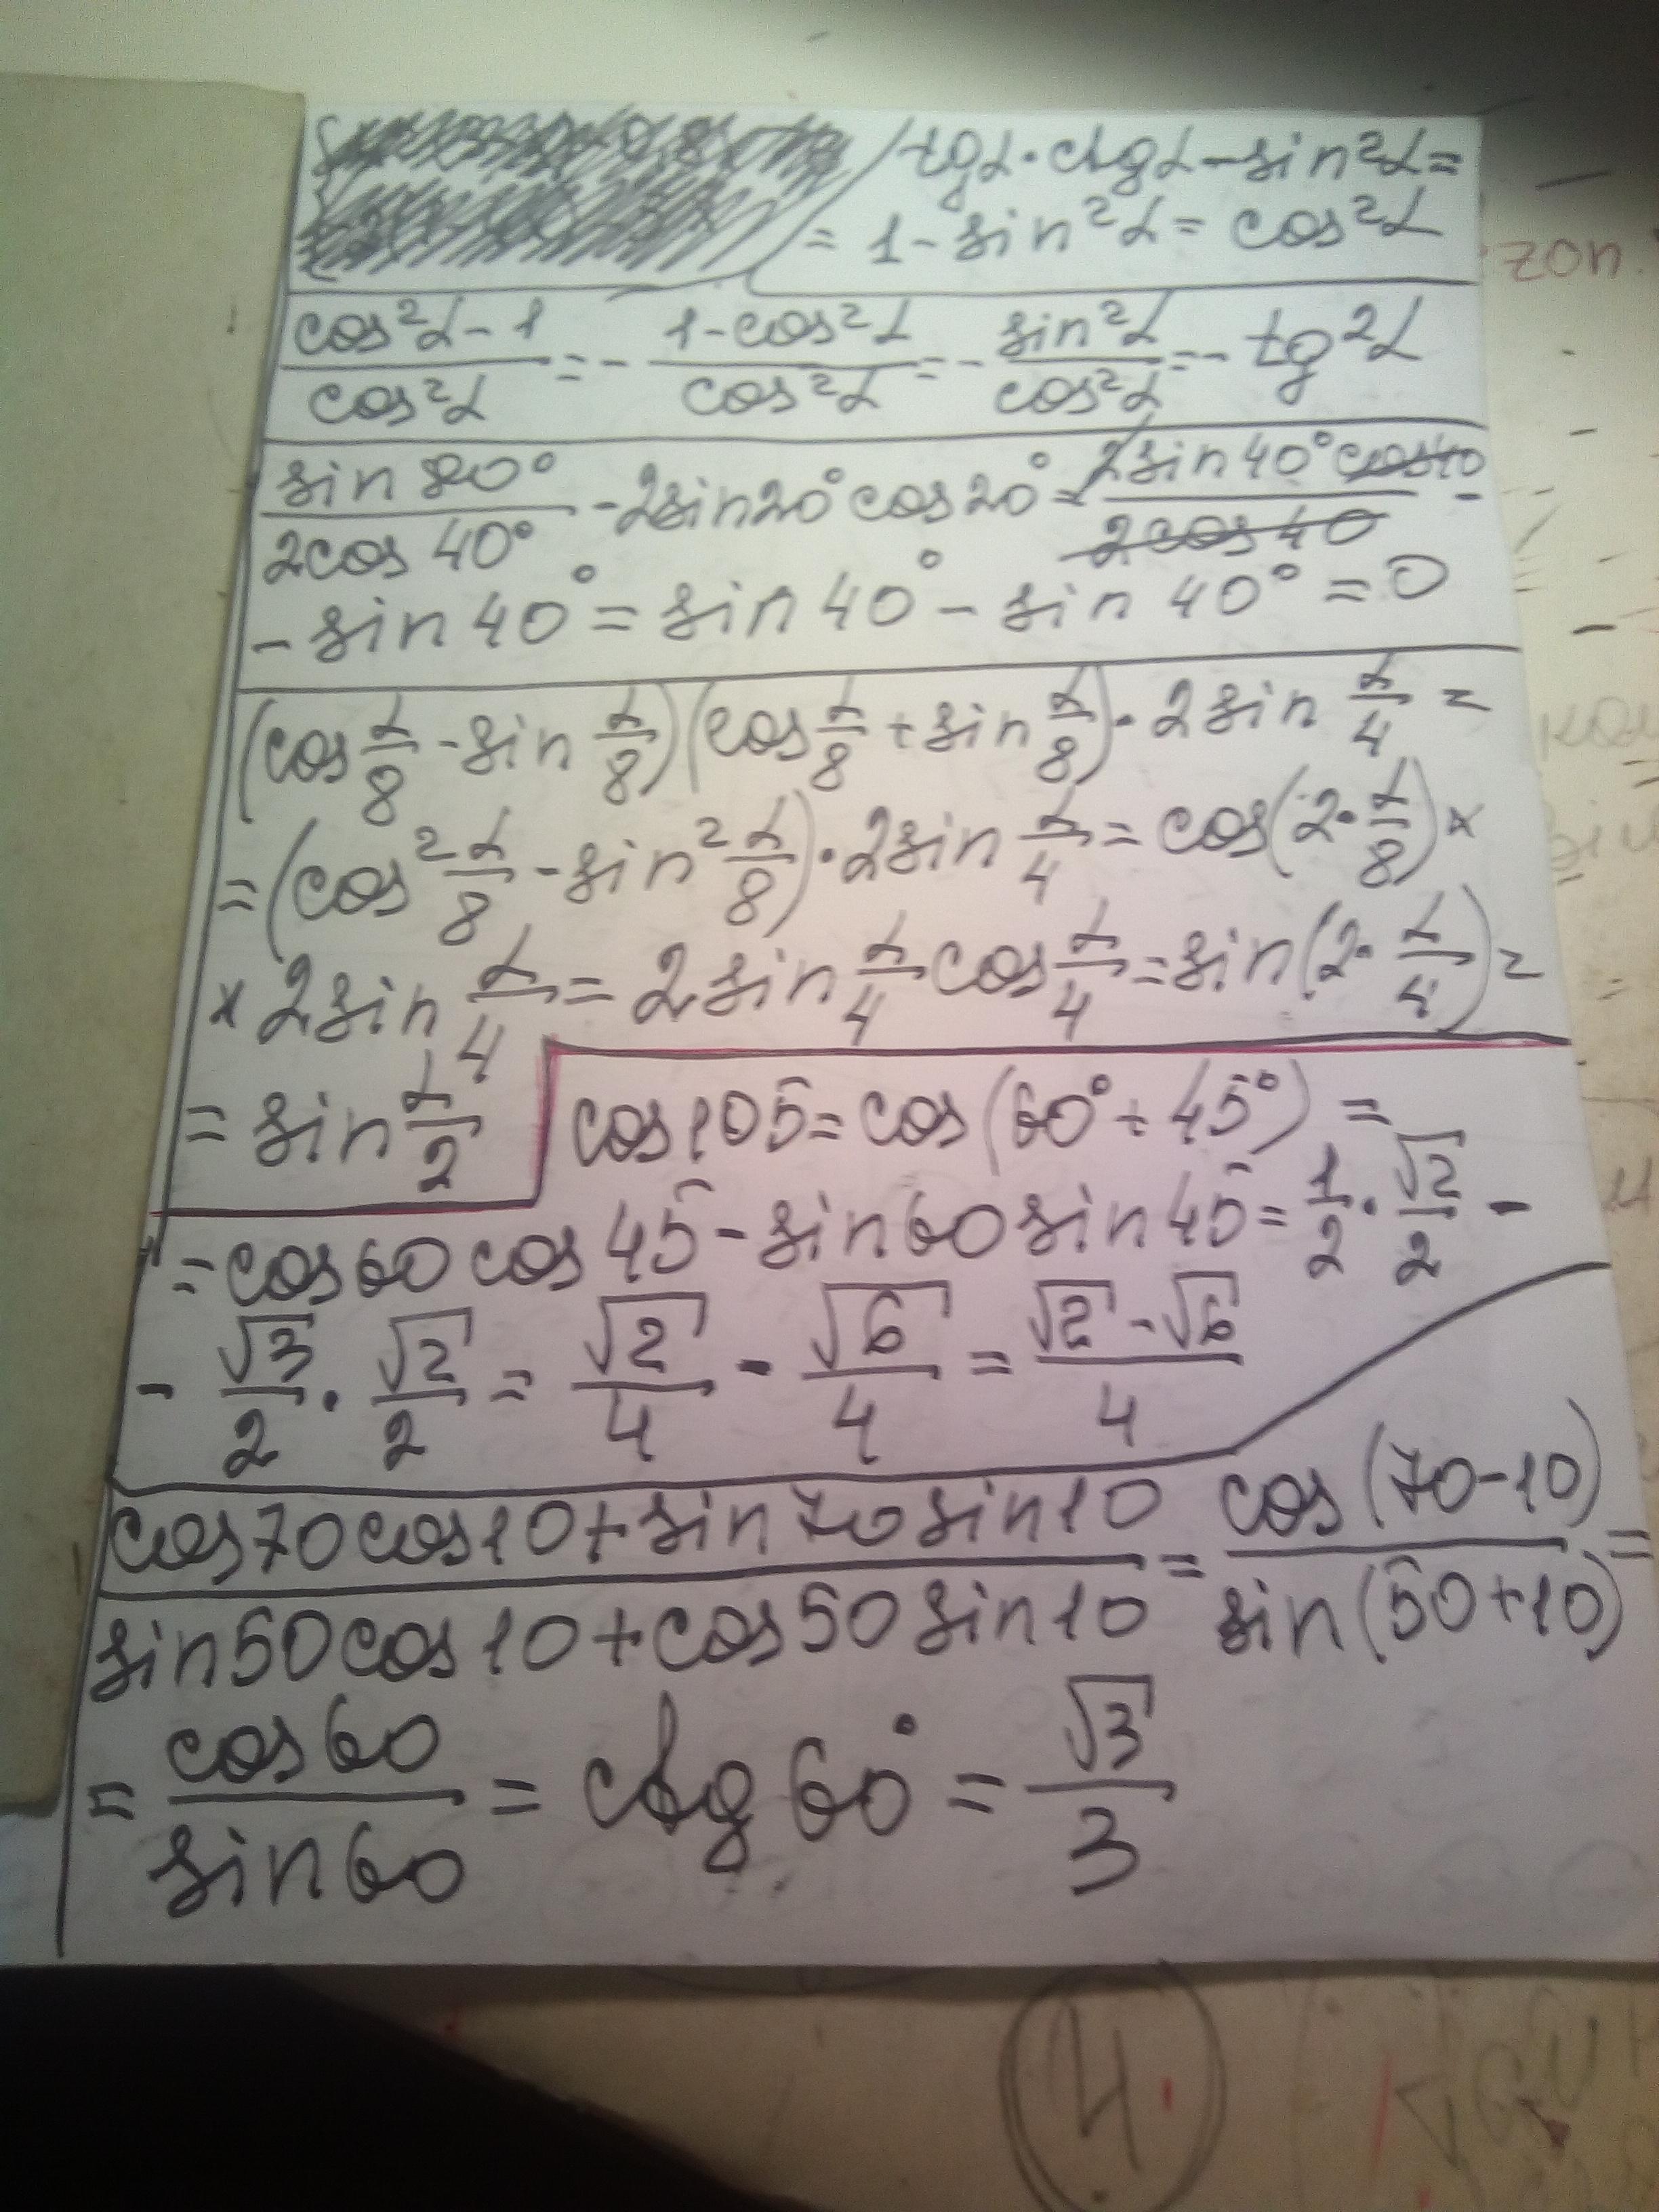 tgα·ctgα-sin²α=
= 1-sin²α= cos²α
cos²α-1/cos²α = - 1-cos²α/cos²α = - sin²α/cos²α = - tg²α
sin80°/2cos40° -2sin20°cos20°= 2sin40°cos40/2cos40 -
- sin40°= sin40°- sin40°=0
(cos α/8 - sin α/8)(cos α/8 + sin α/8)·2sin α/4 =
=(cos² α/8 - sin² α/8)·2sin α/4 = cos(2·α/8)×
×2sin α/4 = 2sin α/4 cos α/4 = sin(2·α/4)=
= sin α/2
cos105=cos(60°+45°)=
=cos60cos45-sin60sin45= 1/2·√2/2 -
- √3/2·√2/2 = √2/4 - √6/4 = √2-√6/4
cos70cos10+sin70sin10/sin50cos10+cos50sin10 = cos(70-10)/sin(50+10) =
= cos60/sin60 = ctg60°= √3/3
zon.
4